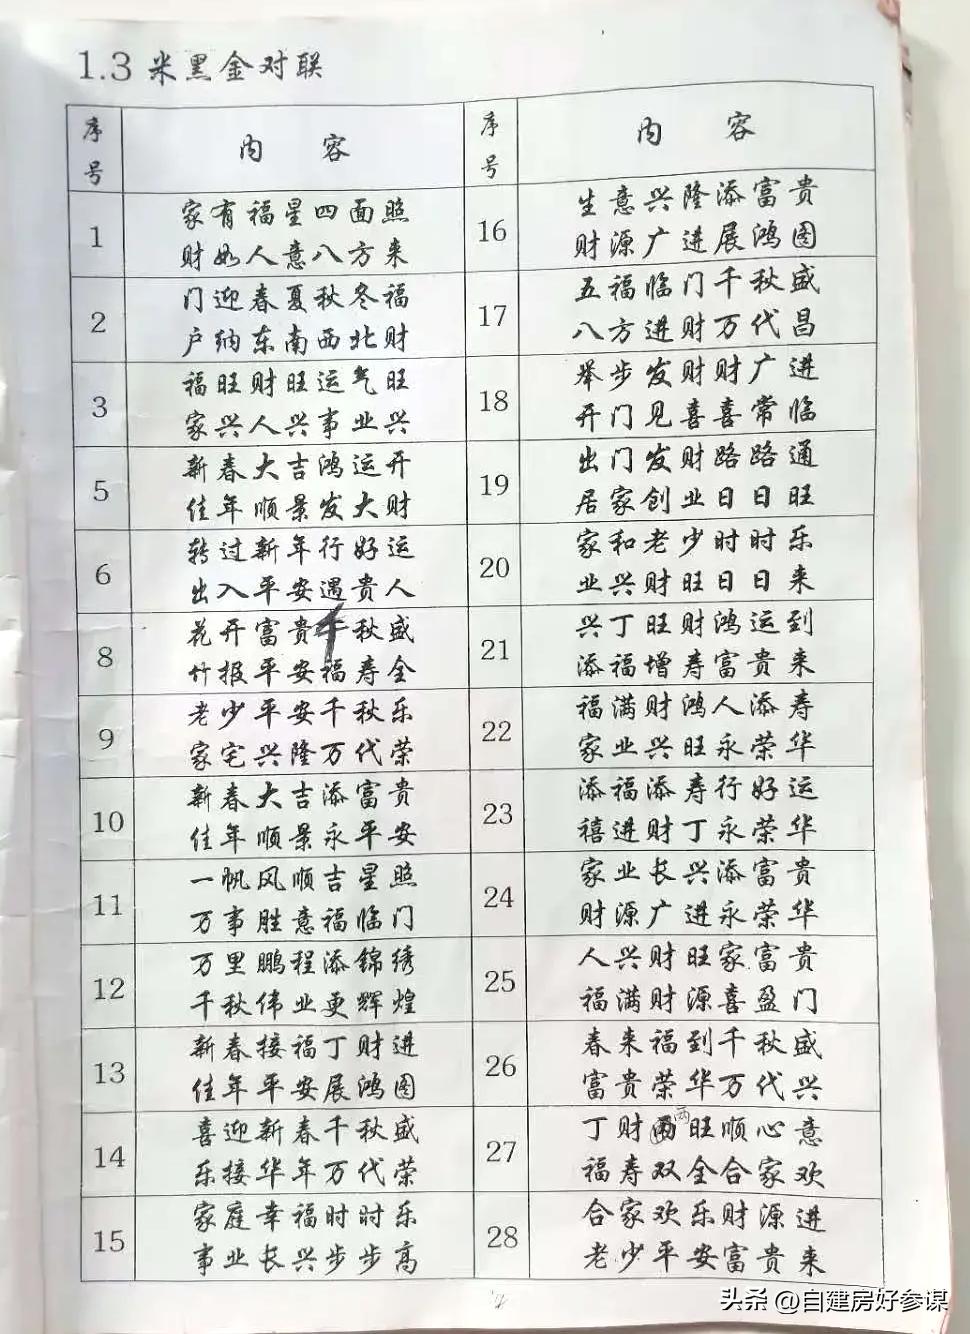 1.3 米黑金对联
序号 内 容
1
家有福星四面照
财如人意八方来
2
门迎春夏秋冬福
户纳东南西北财
3
福旺财旺运气旺
家兴人兴事业兴
5
新春大吉鸿运开
佳年顺景发大财
6
转过新年行好运
出入平安遇贵人
8
花开富贵千秋盛
竹报平安福寿全
9
老少平安千秋乐
家宅兴隆万代荣
10
新春大吉添富贵
佳年顺景永平安
11
一帆风顺吉星照
万事胜意福临门
12
万里鹏程添锦绣
千秋伟业更辉煌
13
新春接福丁财进
佳年平安展鸿图
14
喜迎新春千秋盛
乐接华年万代荣
15
家庭幸福时时乐
事业长兴步步高
序号 内 容
16
生意兴隆添富贵
财源广进展鸿图
17
五福临门千秋盛
八方进财万代昌
18
举步发财财广进
开门见喜喜常临
19
出门发财路路通
居家创业日日旺
20
家和老少时时乐
业兴财旺日日来
21
兴丁旺财鸿运到
添福增寿富贵来
22
福满财鸿人添寿
家业兴旺永荣华
23
添福添寿行好运
禧进财丁永荣华
24
家业长兴添富贵
财源广进永荣华
25
人兴财旺家富贵
福满财源喜盈门
26
春来福到千秋盛
富贵荣华万代兴
27
丁财两旺顺心意
福寿双全合家欢
28
合家欢乐财源进
老少平安富贵来
头条 @自建房好参谋